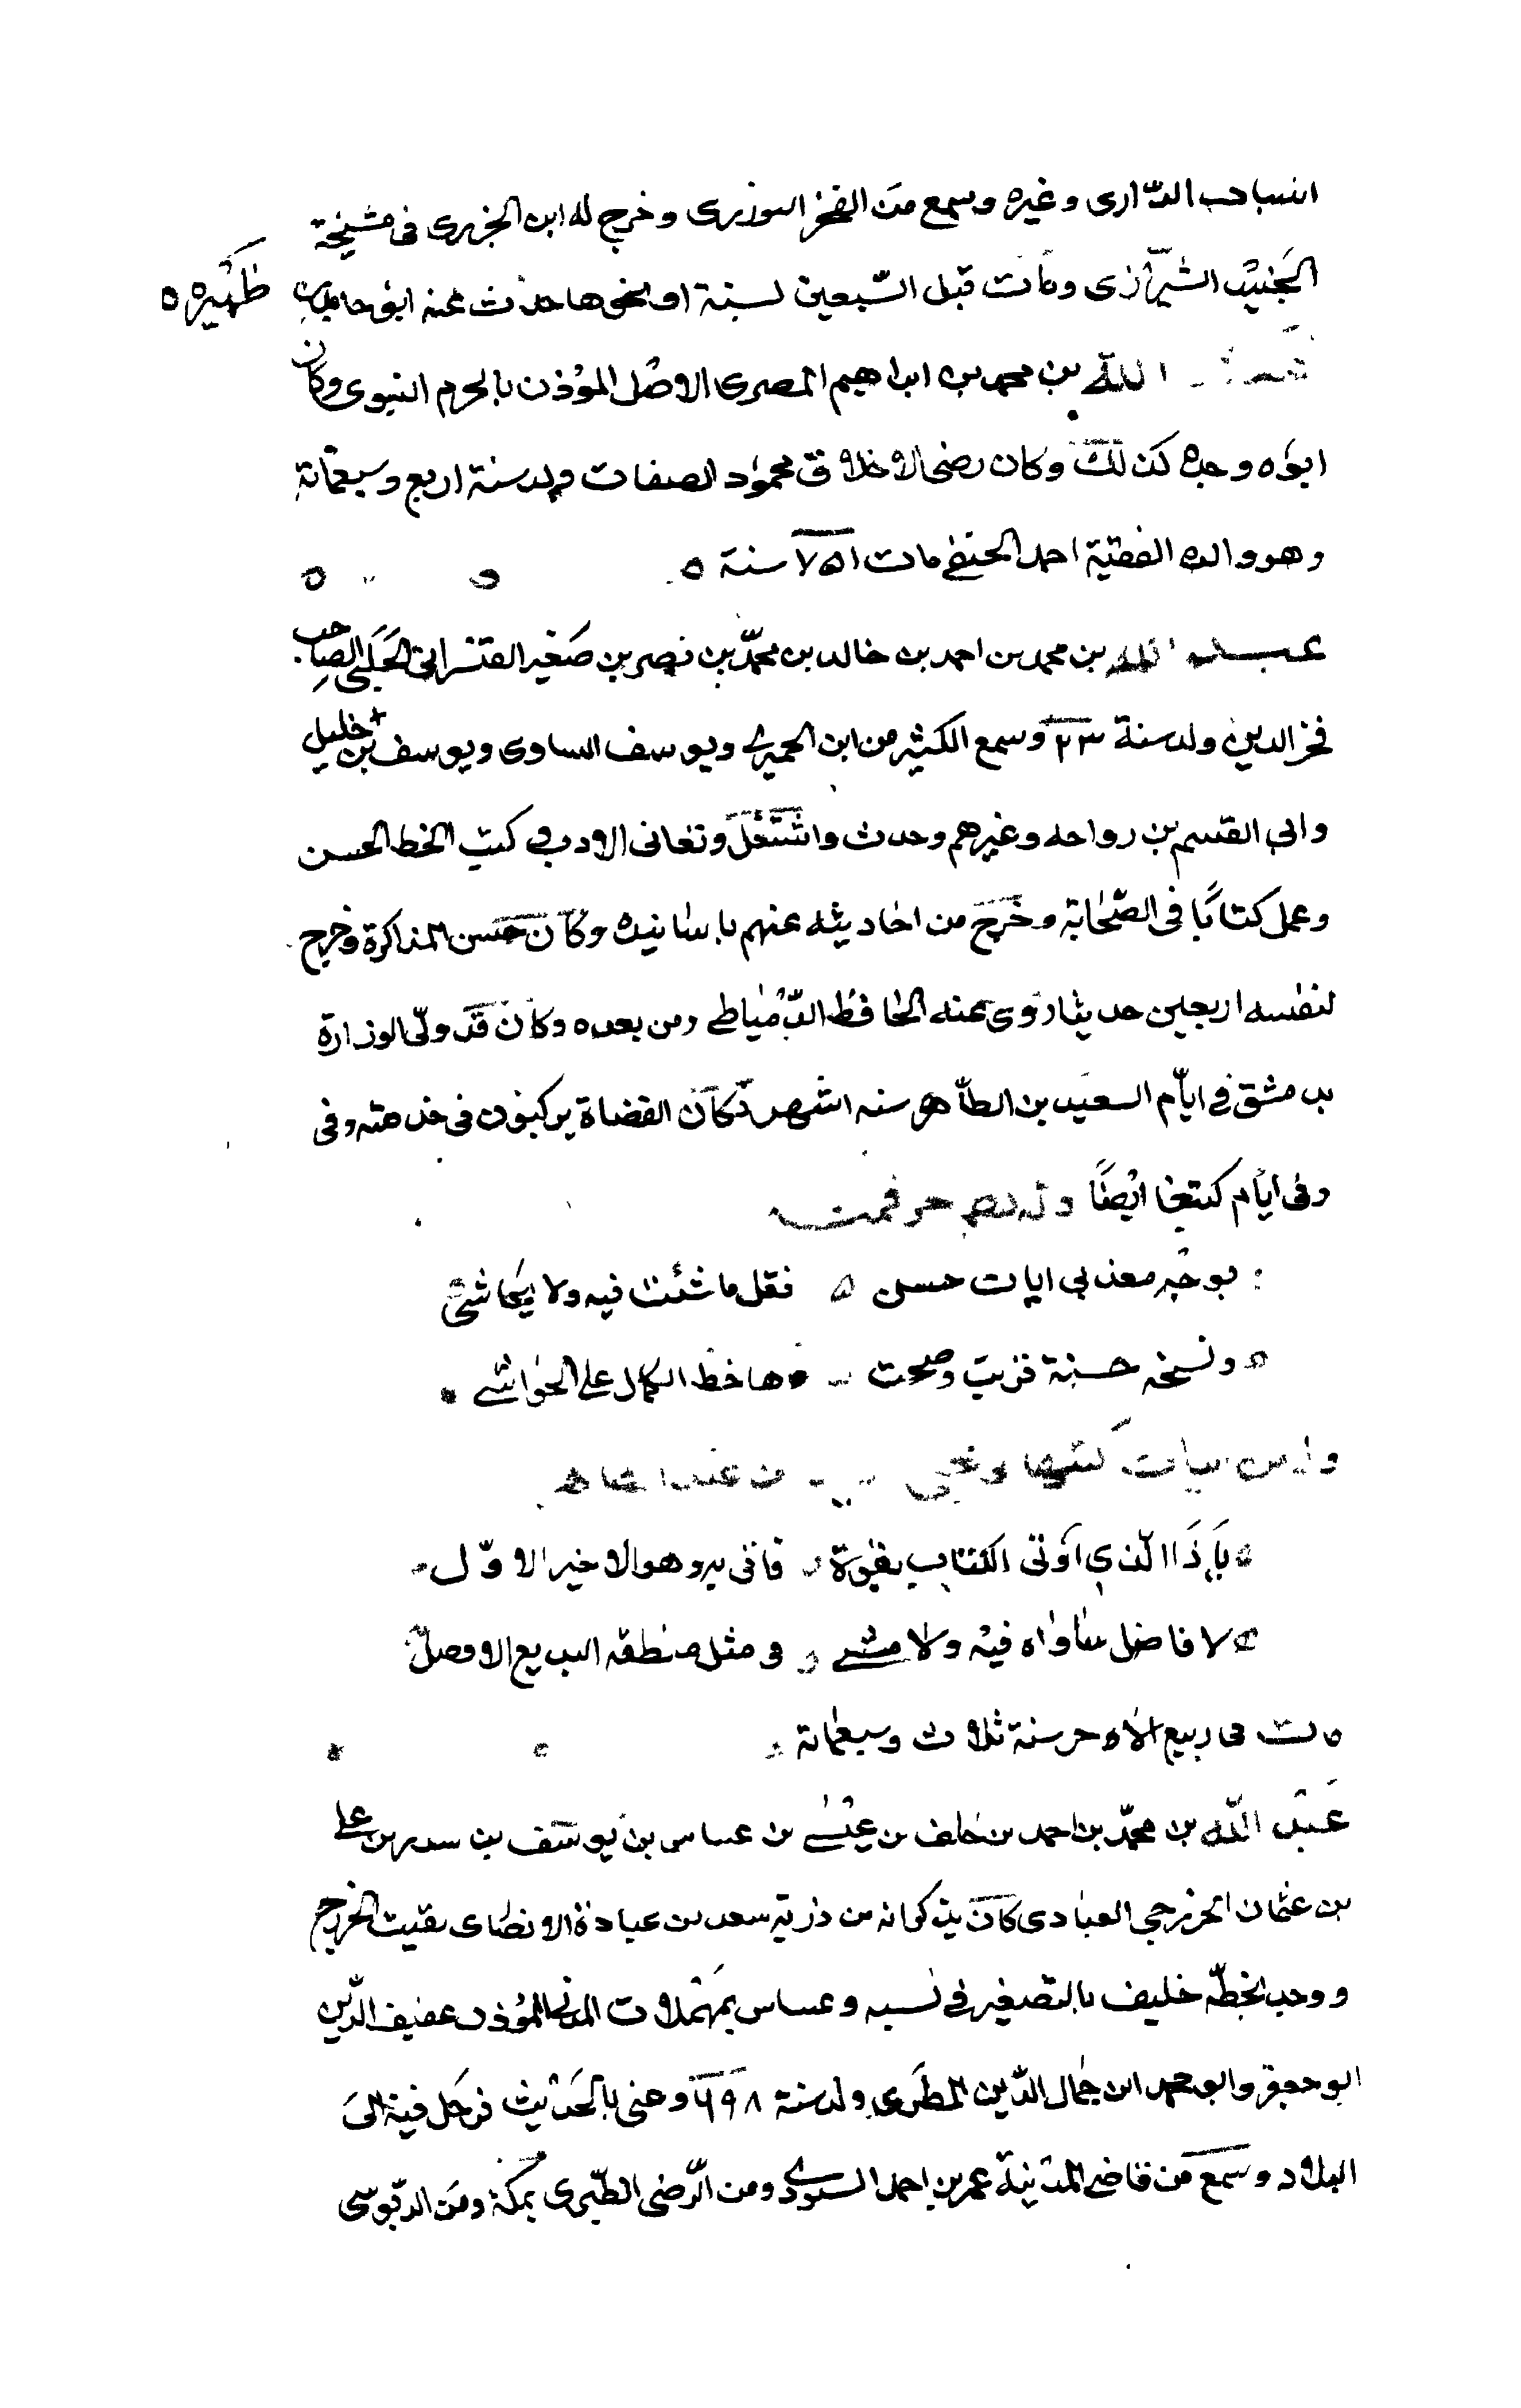 انساحب الدّارى وغيره وسمع من الفخر التوزرى وخرج له ابن الجزرى فى مشيخة
الجنيد الشيرازى ومات قبل السّبعين لسنة او نحوها حدث عنه ابو حامد بن ظهيره ٥
الله بن محمد بن ابراهيم المصرى الاصل المؤذن بالحرم النبوى وكان
ابوه وجده كذلك وكان رضى الاخلاق محمود الصفات ولد سنة اربع وسبعمائة
وهو والد الفقيه احمد الحنفى مات ٧٥١ سنة ٥
عبد الله بن محمد بن احمد بن خالد بن محمّد بن نصر بن صغير القيسرانى الحلبى الصاحب
فخر الدين ولد سنة ٢٣ وسمع الكثير من ابن الحميرى ويوسف الساوى ويوسف بن خليل
وابى القسم بن رواحه وغيرهم وحدث واشتغل وتعانى الادب كتب الخط الحسن
وعمل كتابًا فى الصّحابة وخرج من احاديثه عنهم باسانيده وكان حسن المذاكرة وخرج
لنفسه اربعين حديثا روى عنه الحافظ الدّمياطى ومن بعده وكان قد ولّى الوزارة
بدمشق فى ايّام السعيد بن الظّاهر سنه اشهر وكان القضاة يركبون فى خدمته وفى
وفى ايام كتبغا ايضًا
بوجه معذبى ايات حسن ٥ فقل ما شئت فيه ولا يحاشى
٥ ونسخه حسنة قريت وصحت ها خط الكمال على الحواشى
ابيات كتبها
الّذى اوتى الكتاب بقوة فاتى به وهو الاخير الاوّل
لا فاضل ساواه فيه ولا مشى فى مثل منطقه البديع الافصل
مات فى ربيع الاخر سنة ثلاث وسبعمائة
عبد اللّه بن محمّد بن احمد بن خلف بن عيسى بن عساس بن يوسف بن بدر بن على
بن عثمان الخزرجى العبادى كان يذكر انه من ذرية سعد بن عبادة الانصارى نقيب الخزرج
ووجد بخطّه خليف بالتصغير فى نسبه وعساس بمهملات المدنى المؤذن عفيف الدّين
ابو جعفر وابو محمد ابن جمال الدّين المطرى ولد سنة ٦٩٨ وعنى بالحديث فرحل فيه الى
البلاد وسمع من قاضى المدينة عمر بن احمد السودى ومن الرّضى الطّبرى بمكة ومن الدبّوسى